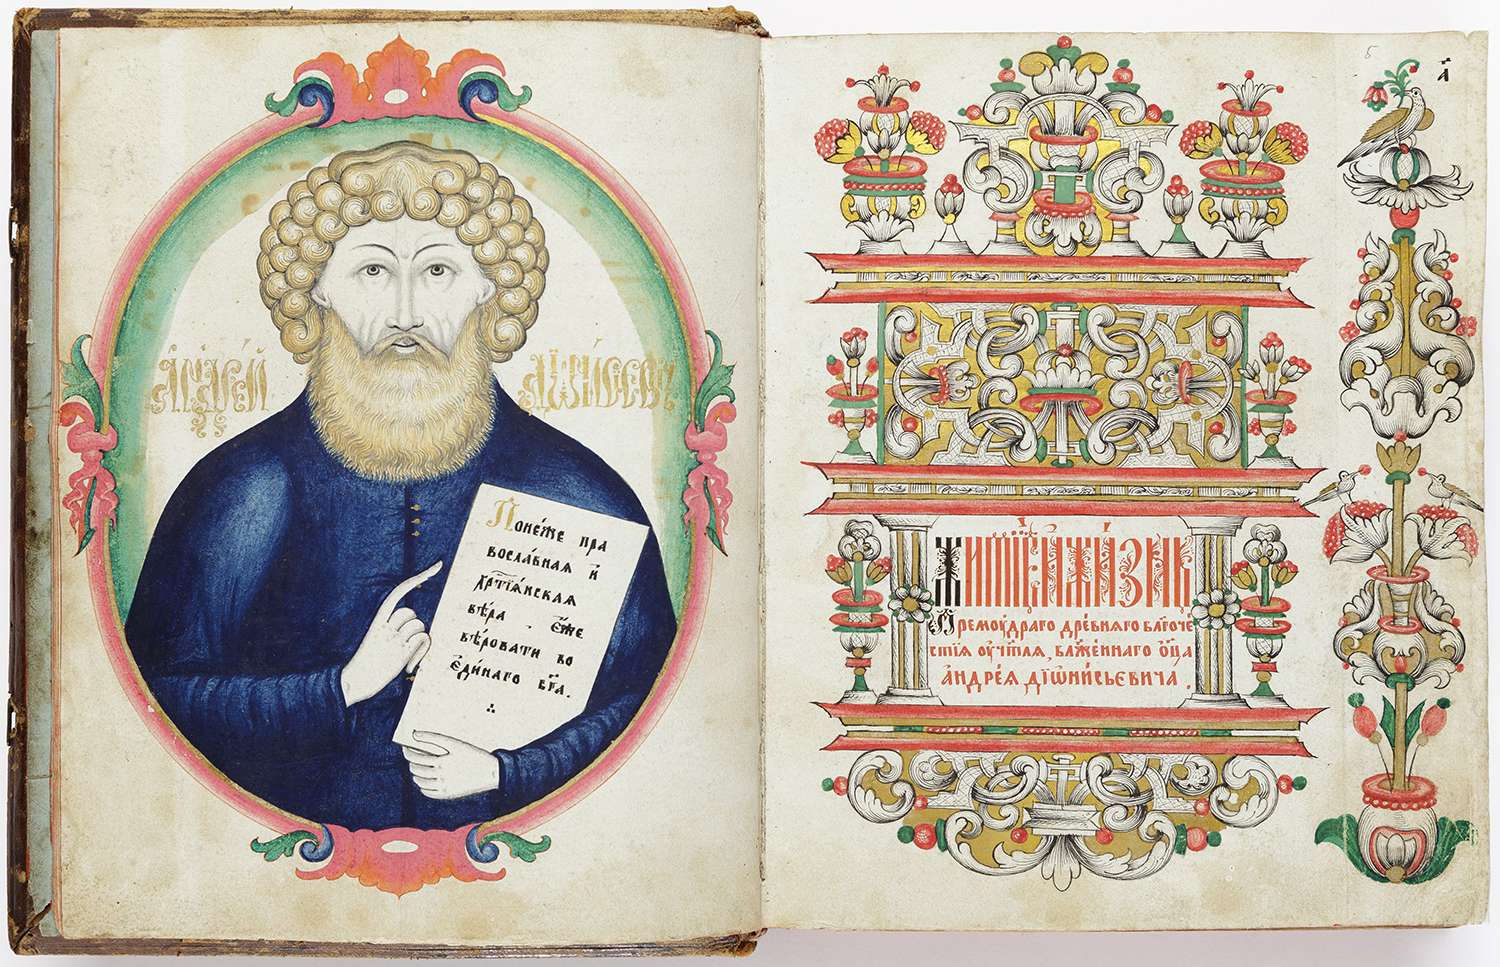 Андрей Дионисьевичъ
Понеже пра
вославная и
хр҃тіанская
вѣра . еже
вѣровати во
единаго бг҃а.
5
а҃
Житіе и жизнь
Премудраго древняго бл҃гоче
стія учт҃ля, блаженнаго ѻц҃а
андрея дїѻнисьевича.